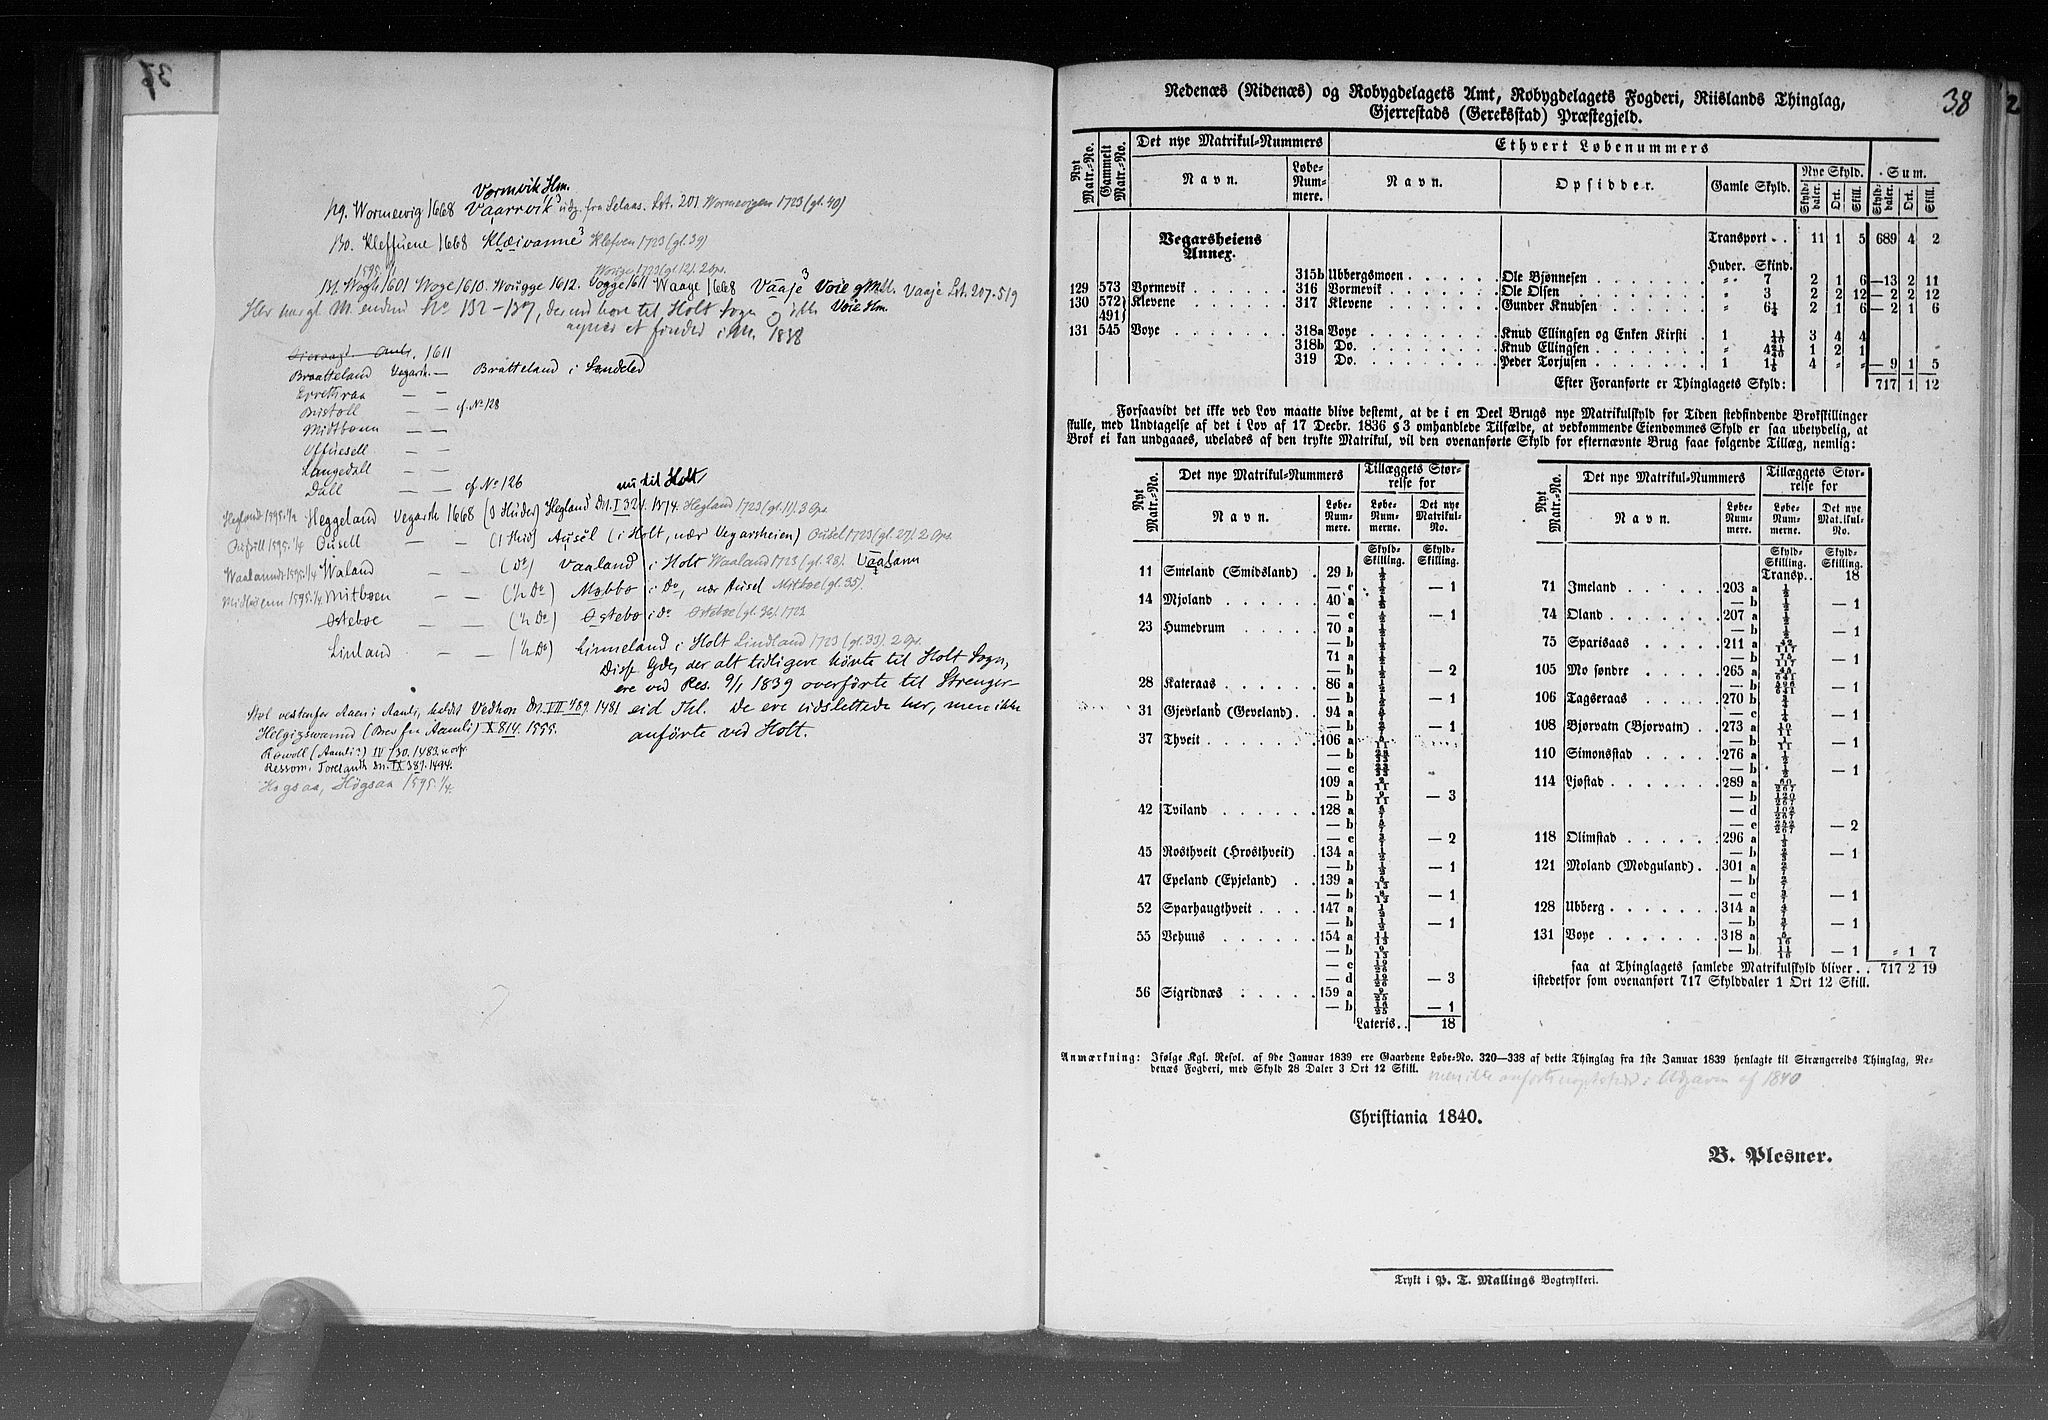 Vormvik Hm.
129. Wormewig 1668 Vaarvik udg. fra Selaas. Lst. 201 Wormevigen 1723 (gl. 40)
130. Kleffuene 1668 Klæivanne Klefven 1723 (gl. 39)
1595. 1/1 Woige 1723 (gl. 12). 2 Opс.
131. Wogh 1601 Woge 1610. Woügge 1612. Vogge 1611 Waaye 1668 Vaaje Voie Vaaje Lst. 207. 519
Her har gl. M. endnu No 132–137, der nu hore til Holt Sogn og ikke Voie Hm.
synes at findes i M. 1838
1611
Braatteland Vegarsh. — Bratteland i Sandeled
Errethraa — —
Bustoll — — cf. No 128
Midtboenn — —
Uffuesell — —
Langedall — —
Dall — — cf No 126
nu til Holt
Heglandt 1595. 1/2 Heggeland Vegarsh 1668 (3 Huder) Hegland DN. I 324. 1374. Hegland 1723 (gl. 11). 3 Ops.
Ousell 1595. 1/4 Ousell — — (1 Hud) Ausöl (i Holt, nær Vegarsheien) Ousel 1723 (gl. 27). 2 Ops.
Waalandt 1595. 1/4 Waland — — (Do) Vaaland i Holt Waaland 1723 (gl. 28). Vaalann
Midboenn 1595. 1/4 Mitboen — — (½ Do) Møbbo i Do, nær Ausel Mitboe (gl. 35).
Østeboe — — (½ Do) Østebo i Do Østeboe (gl. 36). 1723
Linland — — (½ Do) Linneland i Holt Lindland 1723 (gl. 33). 2 Ops.
Disse Gde, der alt tidligere hörte til Holt Sogn,
ere ved Res. 9/1 1839 overførte til Strenger-
eid Thl. De ere udslettede her, men ikke
anførte ved Holt.
vestenfor Aaen i Aamli, Vedhop DN. VII 489. 1481
Helgigswannd (Brev fra Aamli) X 814. 1555.
Røwoll (Aamli?) IV 730. 1483
Ressom. Torelandh DN. IX 389. 1494.
Hogsaa, Høgsaa 1595. 1/4.
38
Nedenæs (Nidenæs) og Robygdelagets Amt, Robygdelagets Fogderi, Riislands Thinglag,
Gjerrestads (Gereksstad) Præstegjeld.
Nyt Matr.-No. Gammelt Matr.-No. Det nye Matrikul-Nummers Ethvert Løbenummers
Navn. Løbe-Nummere. Navn. Opsidder. Gamle Skyld. Nye Skyld. Sum.
Skylddaler. Ort. Skill. Skylddaler. Ort. Skill.
Vegarsheiens Annex. Transport . . 11 1 5 689 4 2
Huder. Skind.
315b Ubbergsmoen . . . . . . Ole Bjønnesen . . . . . . " 7 2 1 6 —13 2 11
129 573 Vormevik 316 Vormevik . . . . . . Ole Olsen . . . . . . " 3 2 2 12 — 2 2 12
130 572} 491} Klevene 317 Klevene . . . . . . Gunder Knudsen . . . . . " 6¼ 2 1 6 — 2 1 6
131 545 Voye 318a Voye . . . . . . Knud Ellingsen og Enken Kirsti . 1 11/40 3 4 4
318b Do. . . . . . . Knud Ellingsen . . . . . . " 4 21/40 1 2 1
319 Do. . . . . . . Peder Torjusen . . . . . . 1 1½ 4 " " — 9 1 5
Efter Foranførte er Thinglagets Skyld: 717 1 12
Forsaavidt det ikke ved Lov maatte blive bestemt, at de i en Deel Brugs nye Matrikulskyld for Tiden stedfindende Brøkskillinger
skulle, med Undtagelse af det i Lov af 17 Decbr. 1836 § 3 omhandlede Tilfælde, at vedkommende Eiendommes Skyld er saa ubetydelig, at
Brøk ei kan undgaaes, udelades af den trykte Matrikul, vil den ovenanførte Skyld for efternævnte Brug faae følgende Tillæg, nemlig:
Nyt Matr.-No. Det nye Matrikul-Nummers Tillæggets Størrelse for
Navn. Løbe-Nummere. Løbe-Nummerne. Det nye Matrikul-No.
Skyld-Skilling. Skyld-Skilling.
11 Smeland (Smidsland) . 29 b ½
— c ½ — 1
14 Mjoland . . . . . 40 a ½
— c ½ — 1
23 Humedrum . . . . 70 a ½
— b ½
71 a ½
— b ½ — 2
28 Kateraas . . . . . 86 a ½
— b ½ — 1
31 Gjeveland (Geveland) . 94 a
— b — 1
37 Thveit . . . . . . 106 a
— b
— c
109 a 2/11
— b 9/11 — 3
42 Tviland . . . . . 128 a
— b
— c — 2
45 Rosthveit (Hrosthveit) . 134 a ½
— b ½ — 1
47 Epeland (Epjeland) . . 139 a 5/13
— b 8/13 — 1
52 Sparhaugthveit . . . . 147 a ½
— b ½ — 1
55 Vehuus . . . . . 154 a
— b
— c
— d — 3
56 Sigridnæs . . . . . 159 a 9/25
— b 16/25 — 1
Lateris . . 18
Nyt Matr.-No. Det nye Matrikul-Nummers Tillæggets Størrelse for
Navn. Løbe-Nummere. Løbe-Nummerne. Det nye Matrikul-No.
Skyld-Skilling. Skyld-Skilling.
Transp. . 18
71 Imeland . . . . . 203 a ½
— b ½ — 1
74 Oland . . . . . . 207 a ½
— b ½ — 1
75 Sparisaas . . . . . 211 a 42/117
— b 75/117 — 1
105 Mo søndre . . . . . 265 a 45/641
— b 596/641 — 1
106 Tagseraas . . . . . 270 b ¾
— c ¼ — 1
108 Bjørvatn (Bjorvatn) . . 273 a 10/11
— b 1/11 — 1
110 Simonstad . . . . . 276 a ½
— b ½ — 1
114 Ljøstad . . . . . . 289 a
— b
— d
— e — 2
118 Olimstad . . . . . 296 a ⅓
— b ⅔ — 1
121 Moland (Modguland) . . 301 a
— b
— c — 1
128 Ubberg . . . . . . 314 a 4/7
— b 3/7 — 1
131 Voye . . . . . . 318 a 5/16
— b 11/16 — 1 " 1 7
saa at Thinglagets samlede Matrikulskyld bliver . . 717 2 19
istedetfor som ovenanført 717 Skylddaler 1 Ort 12 Skill.
Anmærkning: Ifølge Kgl. Resol. af 9de Januar 1839 ere Gaardene Løbe-No. 320—338 af dette Thinglag fra 1ste Januar 1839 henlagte til Strængereids Thinglag, Ne-
denæs Fogderi, med Skyld 28 Daler 3 Ort 12 Skill.
men ikke anførte i Udgaven af 1840
Christiania 1840.
B. Plesner.
Trykt i P. T. Mallings Bogtrykkeri.